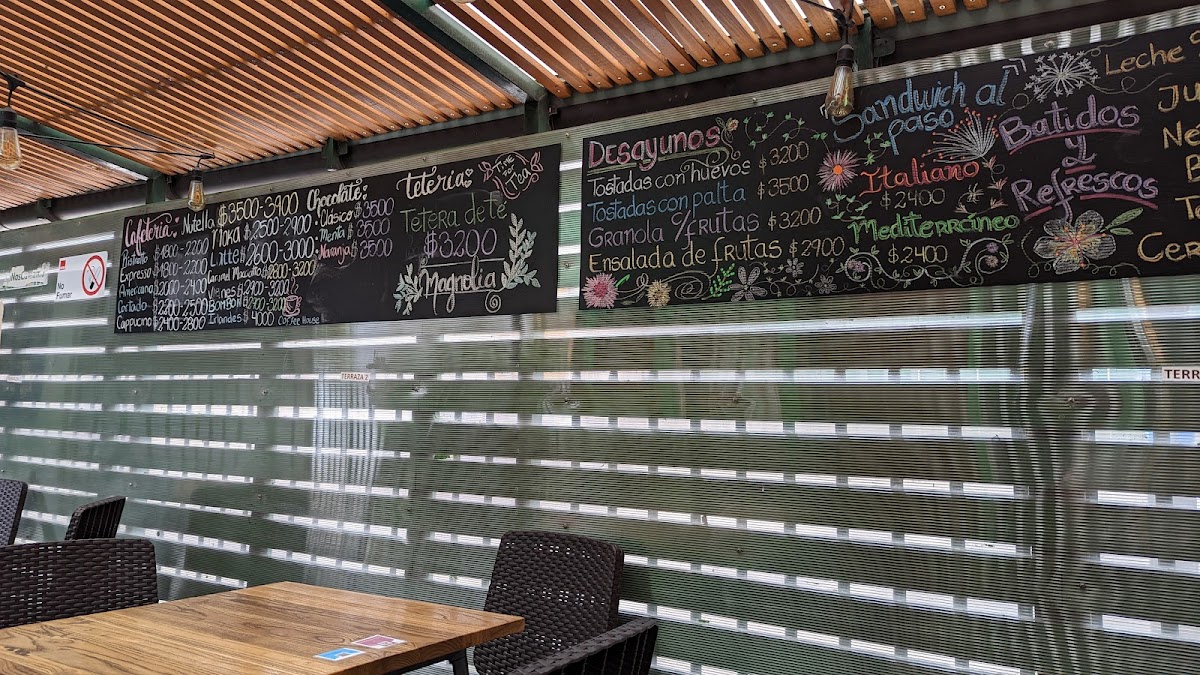 No
Fumar
Cafetería
Ristretto $1800-2200
Expresso $1800-2200
Americano $2000-2400
Cortado $2200-2500
Cappucino $2400-2800
Nutella $3500-3900
Moka $2500-2900
Latte $2600-3000
Caramel Macciatto $2800-3200
Vienes $2900-3200
BOMBON $2900-3200
Irlandes $4000
COFFEE HOUSE
Chocolate
Clásico $3500
Menta $3500
Naranja $3500
teteria
Tetera de té
$3200
Magnolia
Time
For
Tea
DESAYUNOS
Tostadas con huevos $3200
Tostadas con palta $3500
Granola c/frutas $3200
Ensalada de frutas $2900
Sandwich al
paso
Italiano
$2400
Mediterráneo
$2400
Batidos
y
Refrescos
Leche
TERRAZA 2
TERRA